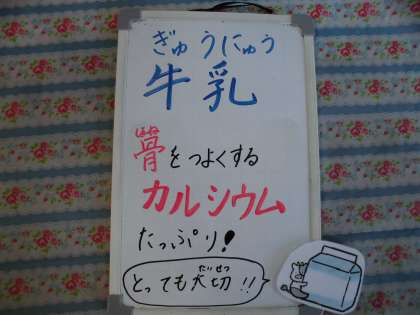 ぎゅうにゅう
牛乳
骨をつよくする
カルシウム
たっぷり!
とっても大切!!
だいせつ